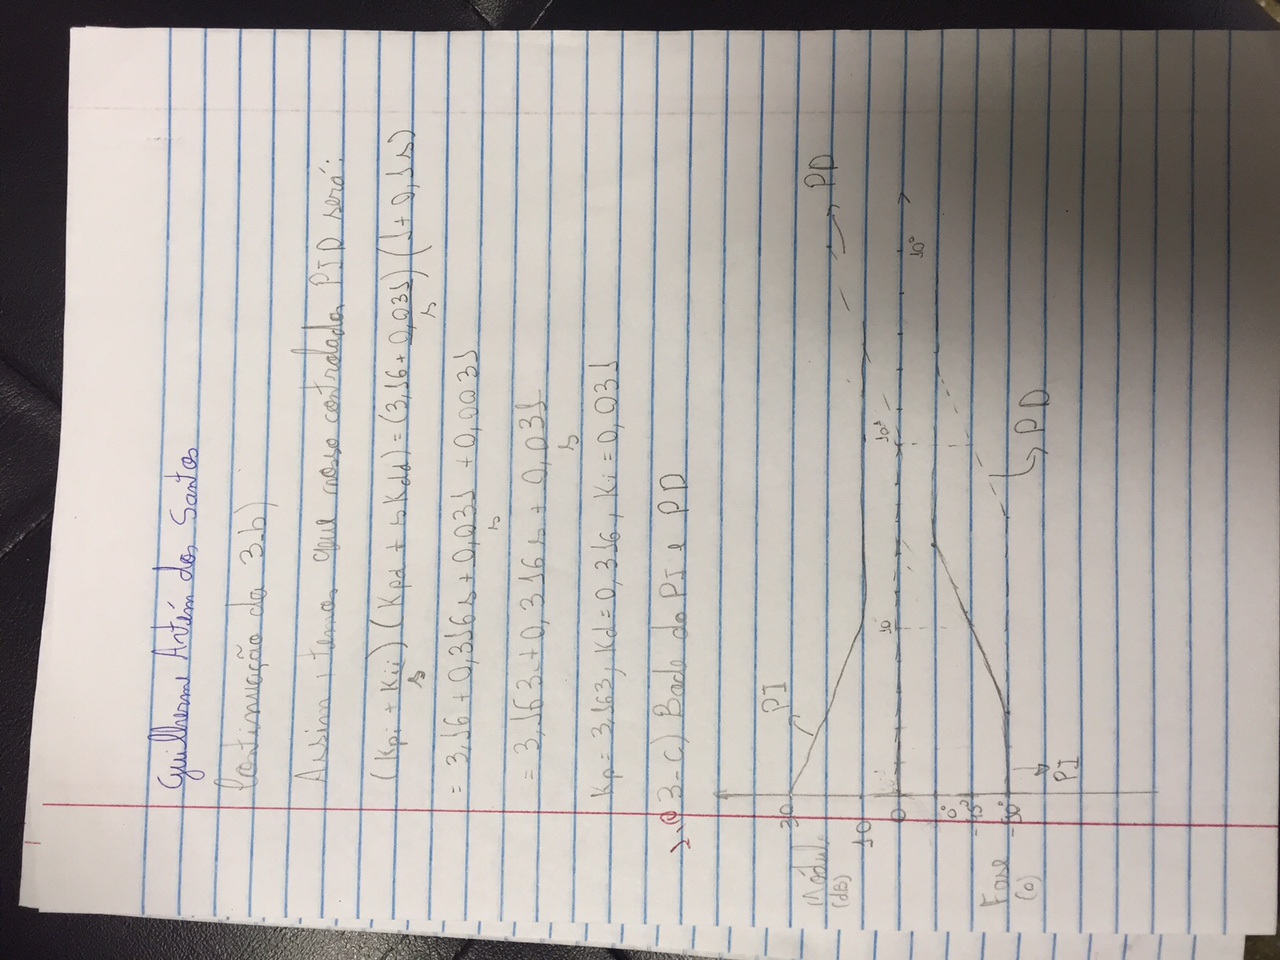 Guilherme Artém dos Santos
Continuação da 3-b)
Assim, temos que nosso controlador PID será:
(Kpi + Kii/s) (Kpd + sKdd) = (3,16 + 0,031/s) (1 + 0,1s)
= 3,16 + 0,316s + 0,031/s + 0,0031
= 3,163 + 0,316s + 0,031/s
Kp = 3,163, Kd = 0,316, Ki = 0,031
3-c) Bode do PI e PD
30
PI
Módulo
(dB)
PD
10
10
10¹
0
10²
0°
-45°
Fase
(o)
-90°
PD
PI